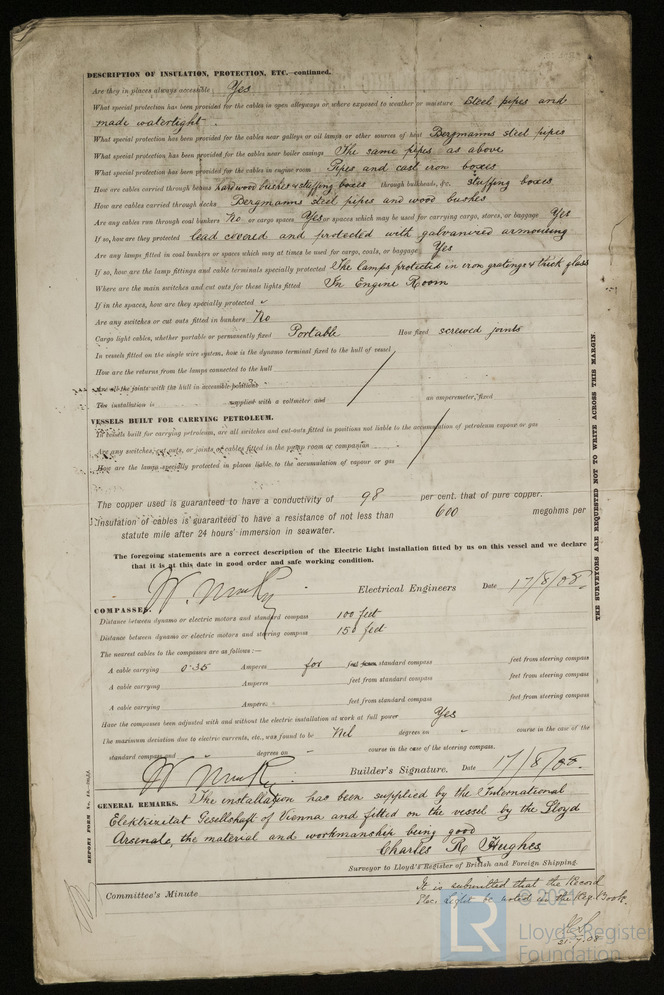 DESCRIPTION OF INSULATION, PROTECTION, ETC.—continued.
Are they in places always accessible Yes
What special protection has been provided for the cables in open alleyways or where exposed to weather or moisture Steel pipes and
made watertight.
What special protection has been provided for the cables near galleys or oil lamps or other sources of heat Bergmanns steel pipes
What special protection has been provided for the cables near boiler casings The same pipes as above
What special protection has been provided for the cables in engine room Pipes and cast iron boxes
How are cables carried through beams hardwood bushes & stuffing boxes through bulkheads, &c. stuffing boxes
How are cables carried through decks Bergmanns steel pipes and wood bushes
Are any cables run through coal bunkers No or cargo spaces Yes or spaces which may be used for carrying cargo, stores, or baggage Yes
If so, how are they protected lead covered and protected with galvanized armouring
Are any lamps fitted in coal bunkers or spaces which may at times be used for cargo, coals, or baggage Yes
If so, how are the lamp fittings and cable terminals specially protected The lamps protected in iron gratings & thick glass
Where are the main switches and cut outs for these lights fitted In Engine Room
If in the spaces, how are they specially protected
Are any switches or cut outs fitted in bunkers No
Cargo light cables, whether portable or permanently fixed Portable How fixed screwed joints
In vessels fitted on the single wire system, how is the dynamo terminal fixed to the hull of vessel
How are the returns from the lamps connected to the hull
Are all the joints with the hull in accessible positions
The installation is supplied with a voltmeter and an amperemeter, fixed
VESSELS BUILT FOR CARRYING PETROLEUM.
In vessels built for carrying petroleum, are all switches and cut-outs fitted in positions not liable to the accumulation of petroleum vapour or gas
Are any switches, cut outs, or joints of cables fitted in the pump room or companion
How are the lamps specially protected in places liable to the accumulation of vapour or gas
The copper used is guaranteed to have a conductivity of 98 per cent. that of pure copper.
Insulation of cables is guaranteed to have a resistance of not less than 600 megohms per
statute mile after 24 hours' immersion in seawater.
The foregoing statements are a correct description of the Electric Light installation fitted by us on this vessel and we declare
that it is at this date in good order and safe working condition.
Electrical Engineers Date 17/8/08.
COMPASSES.
Distance between dynamo or electric motors and standard compass 100 feet
Distance between dynamo or electric motors and steering compass 150 feet
The nearest cables to the compasses are as follows:—
A cable carrying 0.35 Amperes for feet from standard compass feet from steering compass
A cable carrying Amperes feet from standard compass feet from steering compass
A cable carrying Amperes feet from standard compass feet from steering compass
Have the compasses been adjusted with and without the electric installation at work at full power Yes
The maximum deviation due to electric currents, etc., was found to be Nil degrees on " course in the case of the
standard compass and " degrees on " course in the case of the steering compass.
Builder's Signature. Date 17/8/08.
GENERAL REMARKS. The installation has been supplied by the International
Elektrizitat Gesellschaft of Vienna and fitted on the vessel by the Lloyd
Arsenale, the material and workmanship being good
Charles R Hughes
Surveyor to Lloyd's Register of British and Foreign Shipping.
Committee's Minute
It is submitted that the Record
Elec. Light be noted in the Reg. Book.
21.9.08
THE SURVEYORS ARE REQUESTED NOT TO WRITE ACROSS THIS MARGIN.
© 2021
LR
Lloyd's Register
Foundation